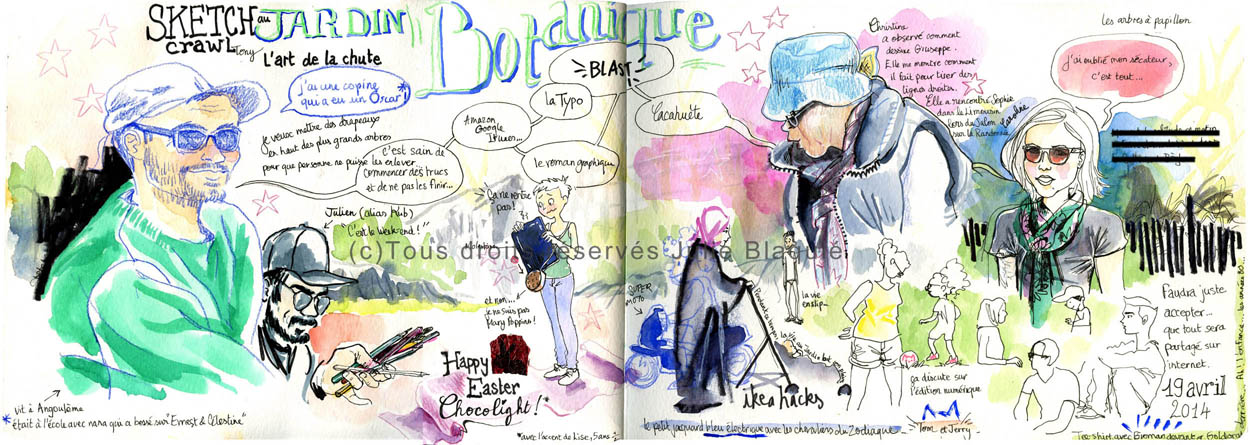 SKETCH au JARDIN Botanique
crawl
Tony
L'art de la chute
j'ai une copine
qui a eu un Oscar! *
je veux mettre des drapeaux
en haut des plus grands arbres
pour que personne ne puisse les enlever...
c'est sain de
commencer des trucs
et de ne pas les finir...
Amazon,
Google
Itunes...
la Typo
BLAST!
le roman graphique
Cacahuète
Julien (alias Kub)
"C'est le week-end!"
Ça ne rentre
pas!
et non...
je ne suis pas
Mary Poppins!
Happy
Easter
Chocolight! *
vit à Angoulême
* était à l'école avec nana qui a bossé sur "Ernest & Célestine"
*avec l'accent de Lise, 5 ans
Christine
a observé comment
dessine Giuseppe.
Elle me montre comment
il fait pour tirer des
lignes droites.
Elle a rencontré Sophie
dans le Limousin
sur la Randonnée
Caroline
les arbres à papillon
j'ai oublié mon sécateur,
c'est tout...
SUPER
moto
la vie
en slip...
Pendant ce temps,
ikea hacks
ça discute sur
l'édition numérique
Tom et Jerry
le petit jacquard bleu électrique avec les chevaliers du Zodiaque
Faudra juste
accepter...
que tout sera
partagé sur
internet.
19 avril
2014
Tee-shirt avec Bioman devant et Goldorak
derrière... Ah! l'enfance... les années 80...
(c)Tous droits réservés June Blaquié